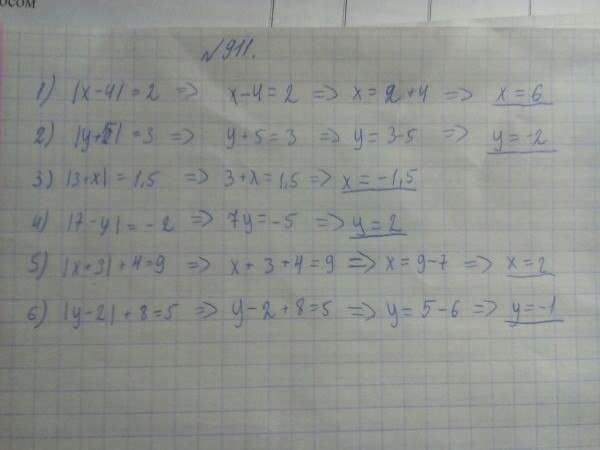 осом
№911.
1) |x-4| = 2 => x-4 = 2 => x = 2+4 => x = 6
2) |y+5| = 3 => y+5 = 3 => y = 3-5 => y = -2
3) |3+x| = 1,5 => 3+x = 1,5 => x = -1,5
4) |7-y| = -2 => 7y = -5 => y = 2
5) |x+3| + 4 = 9 => x+3+4 = 9 => x = 9-7 => x = 2
6) |y-2| + 8 = 5 => y-2+8 = 5 => y = 5-6 => y = -1